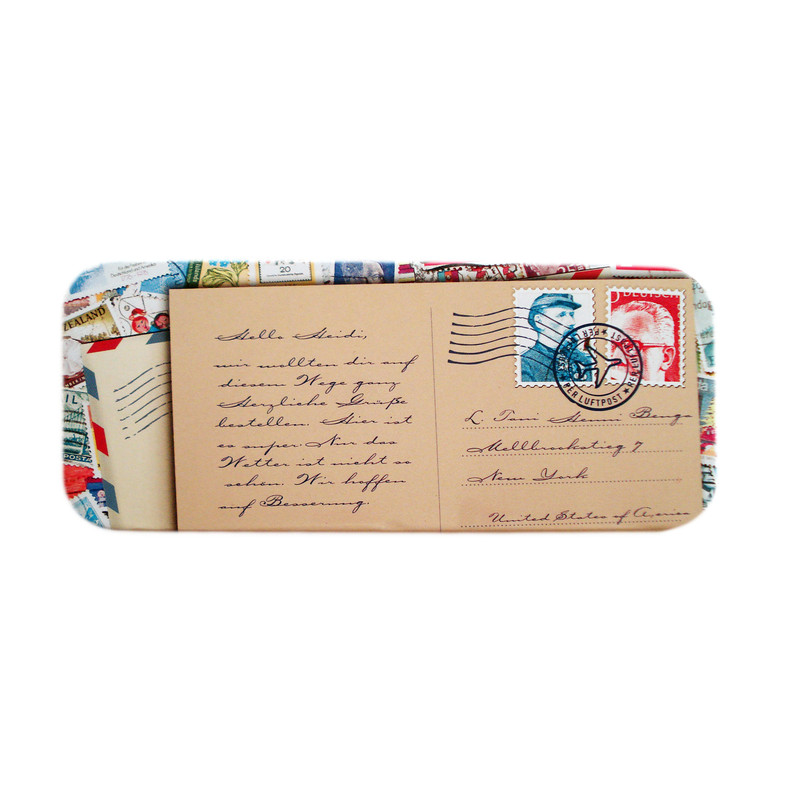 Hello Heidi,
wir wollten dir auf
diesem Wege ganz
Herzliche Grüße
bestellen. Hier ist
es super. Nur das
Wetter ist nicht so
schön. Wir hoffen
auf Besserung.
DEUTSCH
PER LUFTPOST
L. Toni Henni Benga
Mellbrookstieg 7
New York
United States of America
ZEALAND
20
POSTA